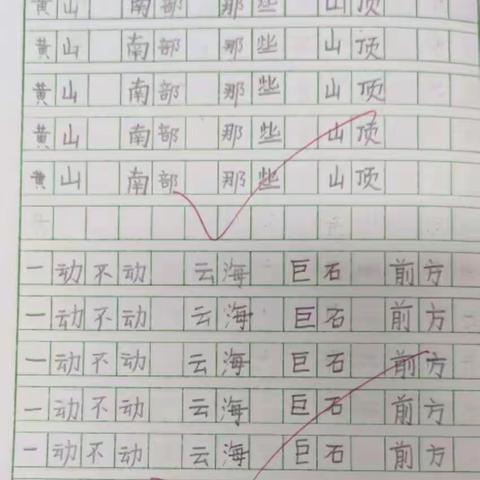 黄山 南部 那些 山顶
黄山 南部 那些 山顶
黄山 南部 那些 山顶
黄山 南部 那些 山顶
黄山 南部 那些 山顶
一动不动 云海 巨石 前方
一动不动 云海 巨石 前方
一动不动 云海 巨石 前方
一动不动 云海 巨石 前方
一动不动 云海 巨石 前方